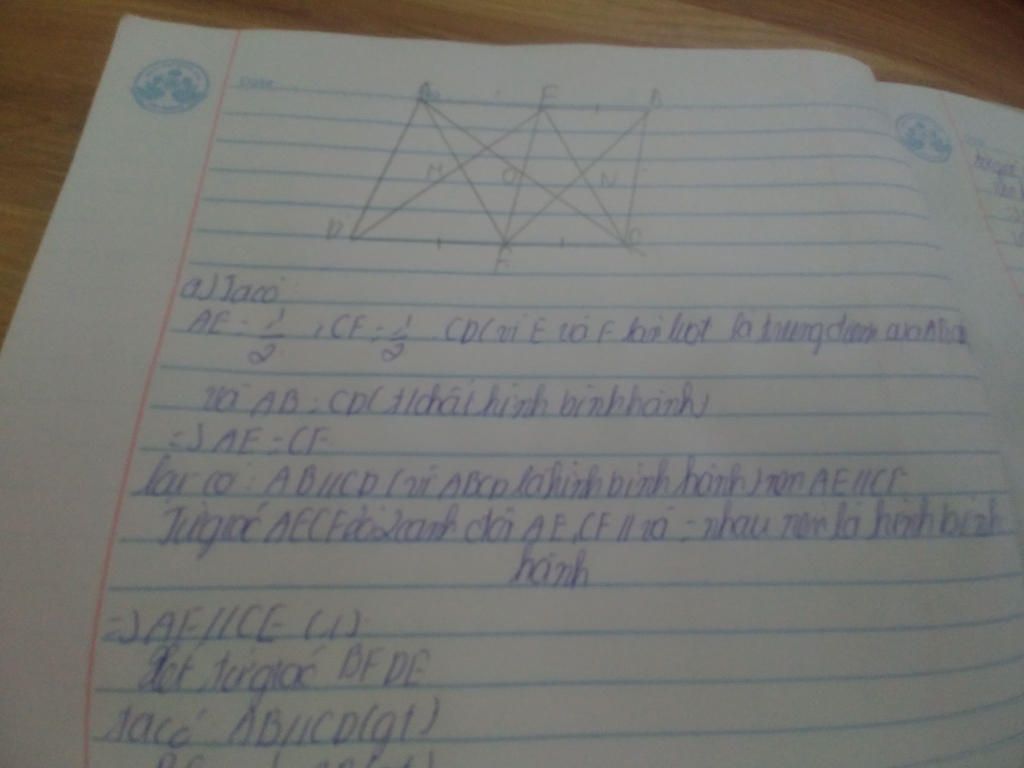 Date
A E B
M O N
D F C
a) Ta có:
AE = 1/2 , CF = 1/2 . CD (vì E và F lần lượt là trung điểm của AB và
và AB = CD (t/chất hình bình hành)
=> AE = CF
lại có: AB // CD (vì ABCD là hình bình hành) nên AE // CF
Tứ giác AECF có 2 cạnh đối AE, CF // và = nhau nên là hình bình
hành
=> AF // CE (1)
Xét tứ giác BFDE
ta có AB // CD (gt)